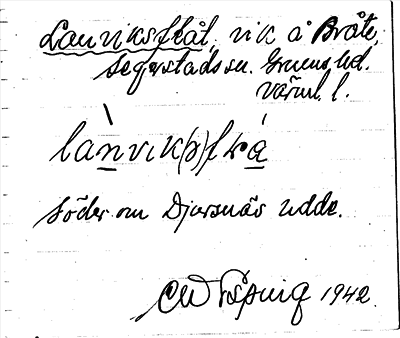 Lanviksflåt, vik å Bråte,
Segerstads sn. Grums hd.
Värml. l.
lànvik(s)flå
Söder om Djursnäs udde.
CW 1942.